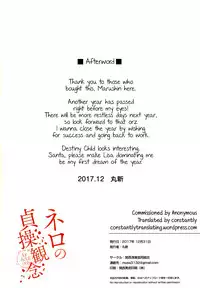 ■ Afterword ■
Thank you to those who
bought this, Marushin here.
Another year has passed
right before my eyes!
There will be more restless days next year,
so look forward to that orz
I wanna close the year by wishing
for success and going back to work.
Destiny Child looks interesting.
Santa, please make Lisa dominating me
be my first dream of the year.
2017.12 丸新
ネロの
貞操観念
Commissioned by Anonymous
Translated by constantly
constantlytranslating.wordpress.com
発行日：2017年12月31日